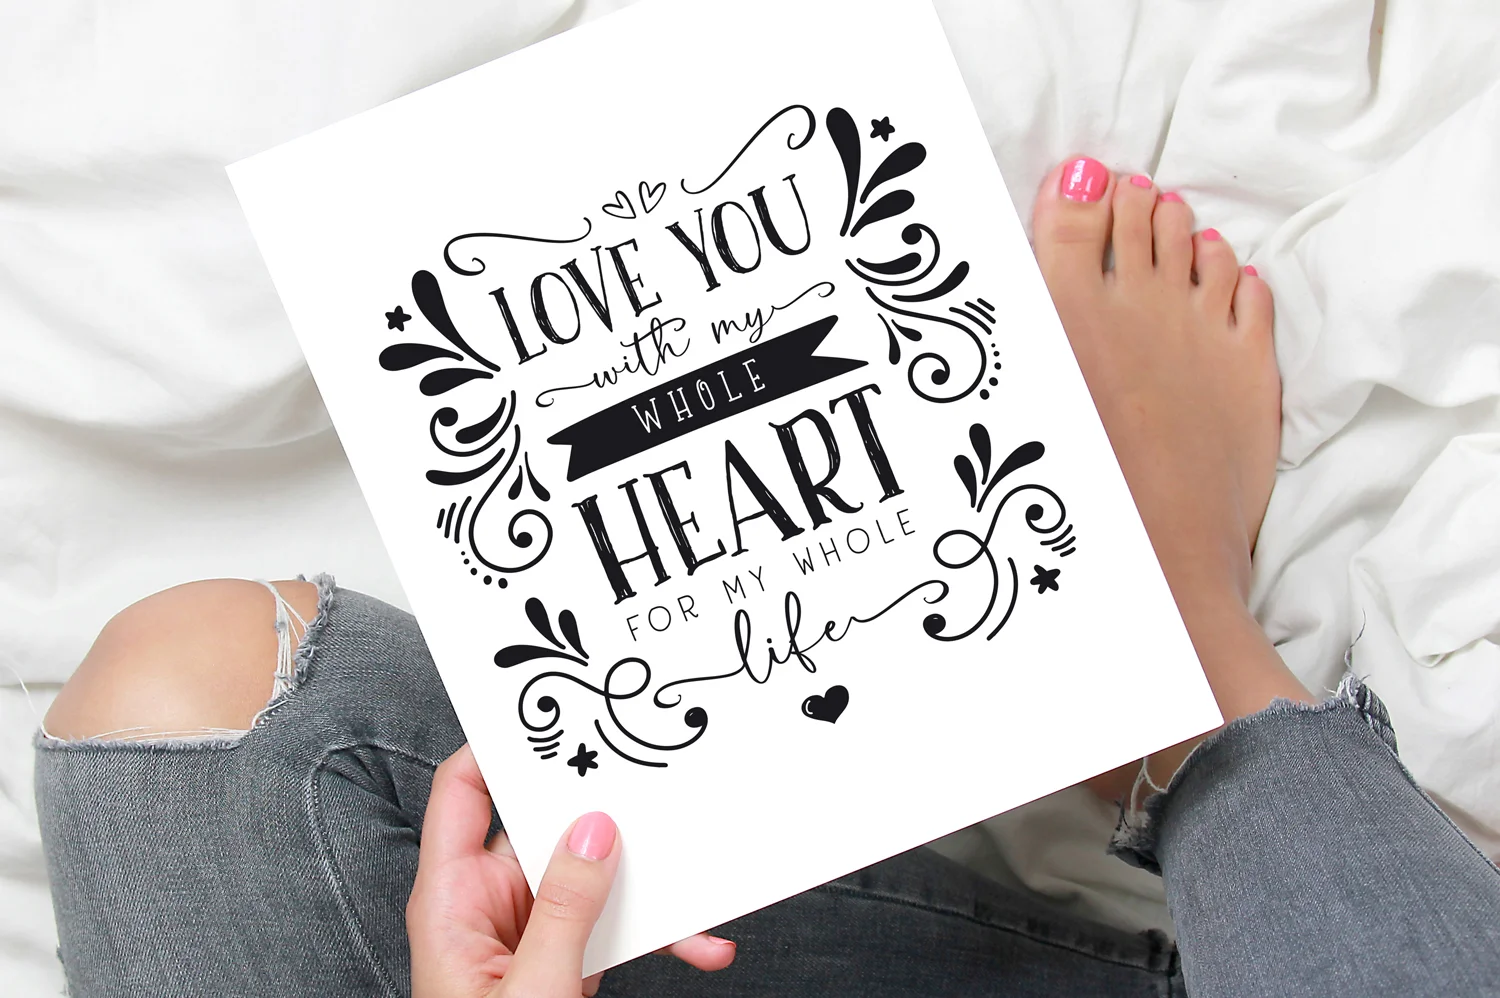 LOVE YOU
with my
WHOLE
HEART
FOR MY WHOLE
life